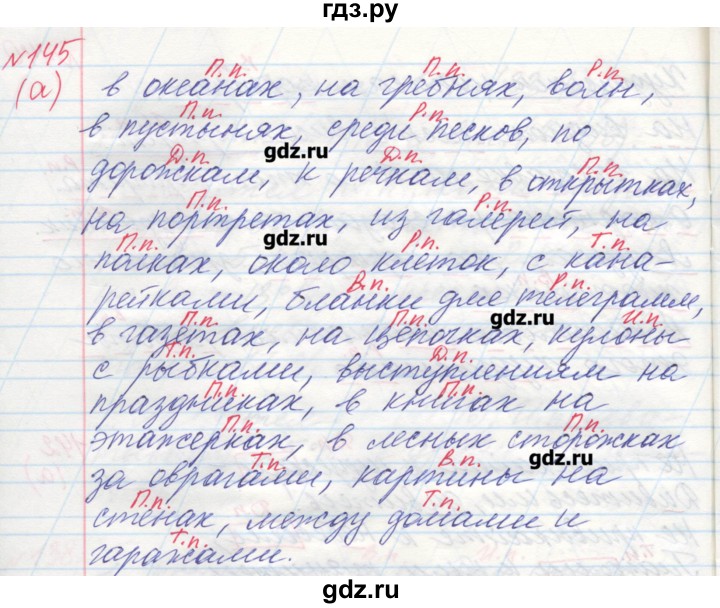 гдз.ру
№145
(а)
П.п. П.п. Р.п.
в океанах, на гребнях, волн,
П.п. Р.п.
в пустынях, среди песков, по
gdz.ru
Д.п. Д.п. П.п.
дорожкам, к речкам, в открытках,
П.п. Р.п.
на портретах, из галерей, на
gdz.ru
П.п. Р.п. Т.п.
полках, около клеток, с кана-
В.п. Р.п.
рейками, бланки для телеграмм,
gdz.ru
П.п. П.п. И.п.
в газетах, на цепочках, кулоны
Т.п. Д.п.
с рыбками, выступлениям на
П.п. П.п.
праздниках, в книгах на
П.п. П.п.
этажерках, в лесных сторожках
gdz.ru
Т.п. В.п.
за оврагами, картины на
П.п. Т.п.
стенах, между домами и
Т.п.
гаражами.
gdz.ru